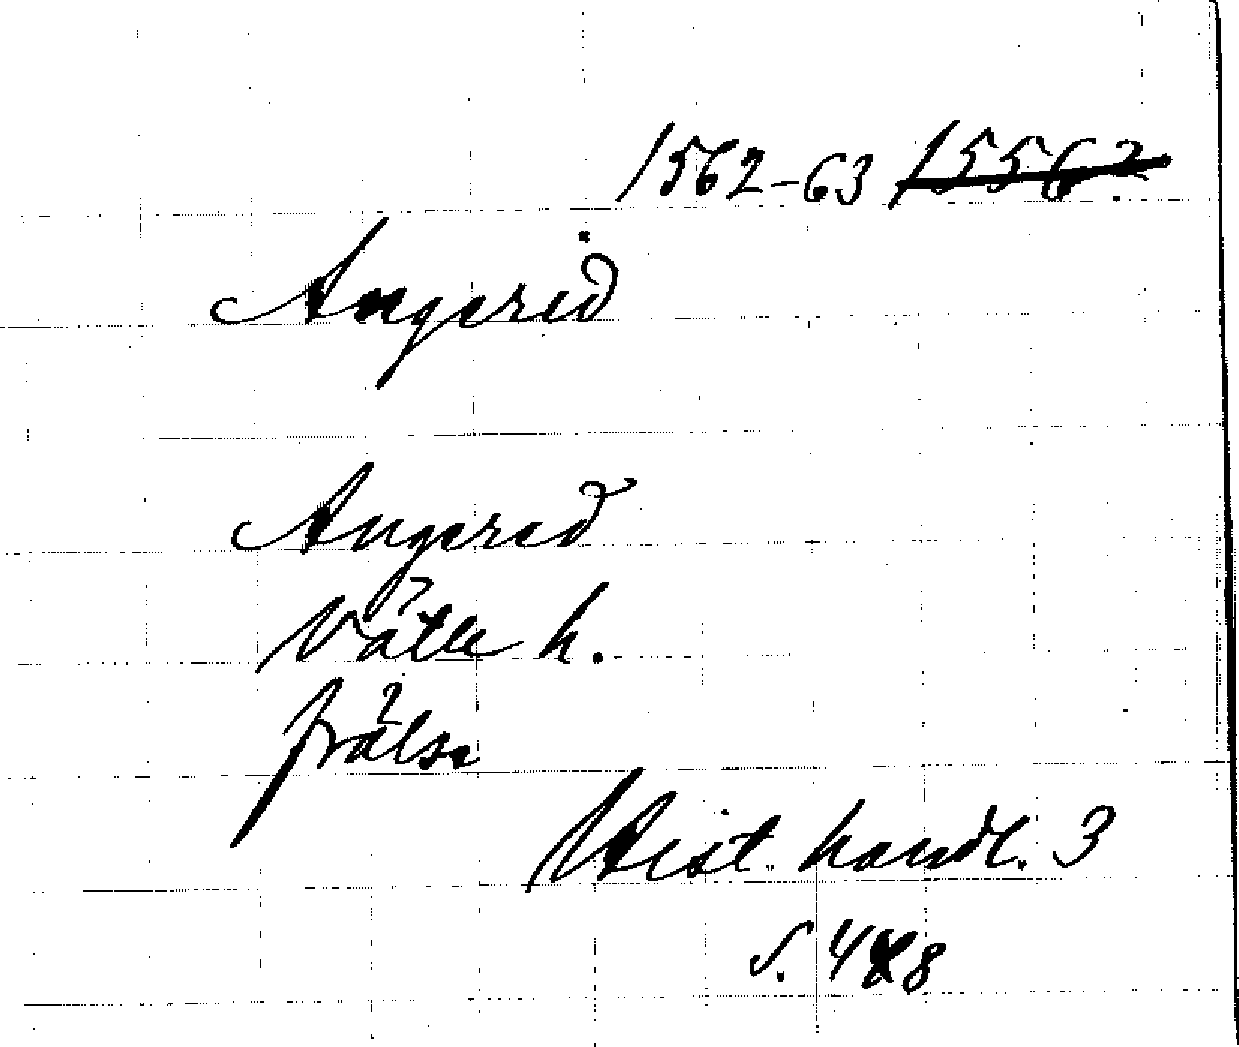 1562-63 15562
Angered
Angered
Vätle h.
frälse
Hist. handl. 3
s. 48